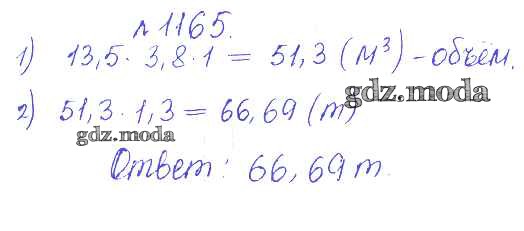 №1165.
1) 13,5 · 3,8 · 1 = 51,3 (м³) - объём.
2) 51,3 · 1,3 = 66,69 (т)
gdz.moda
gdz.moda
Ответ: 66,69 т.